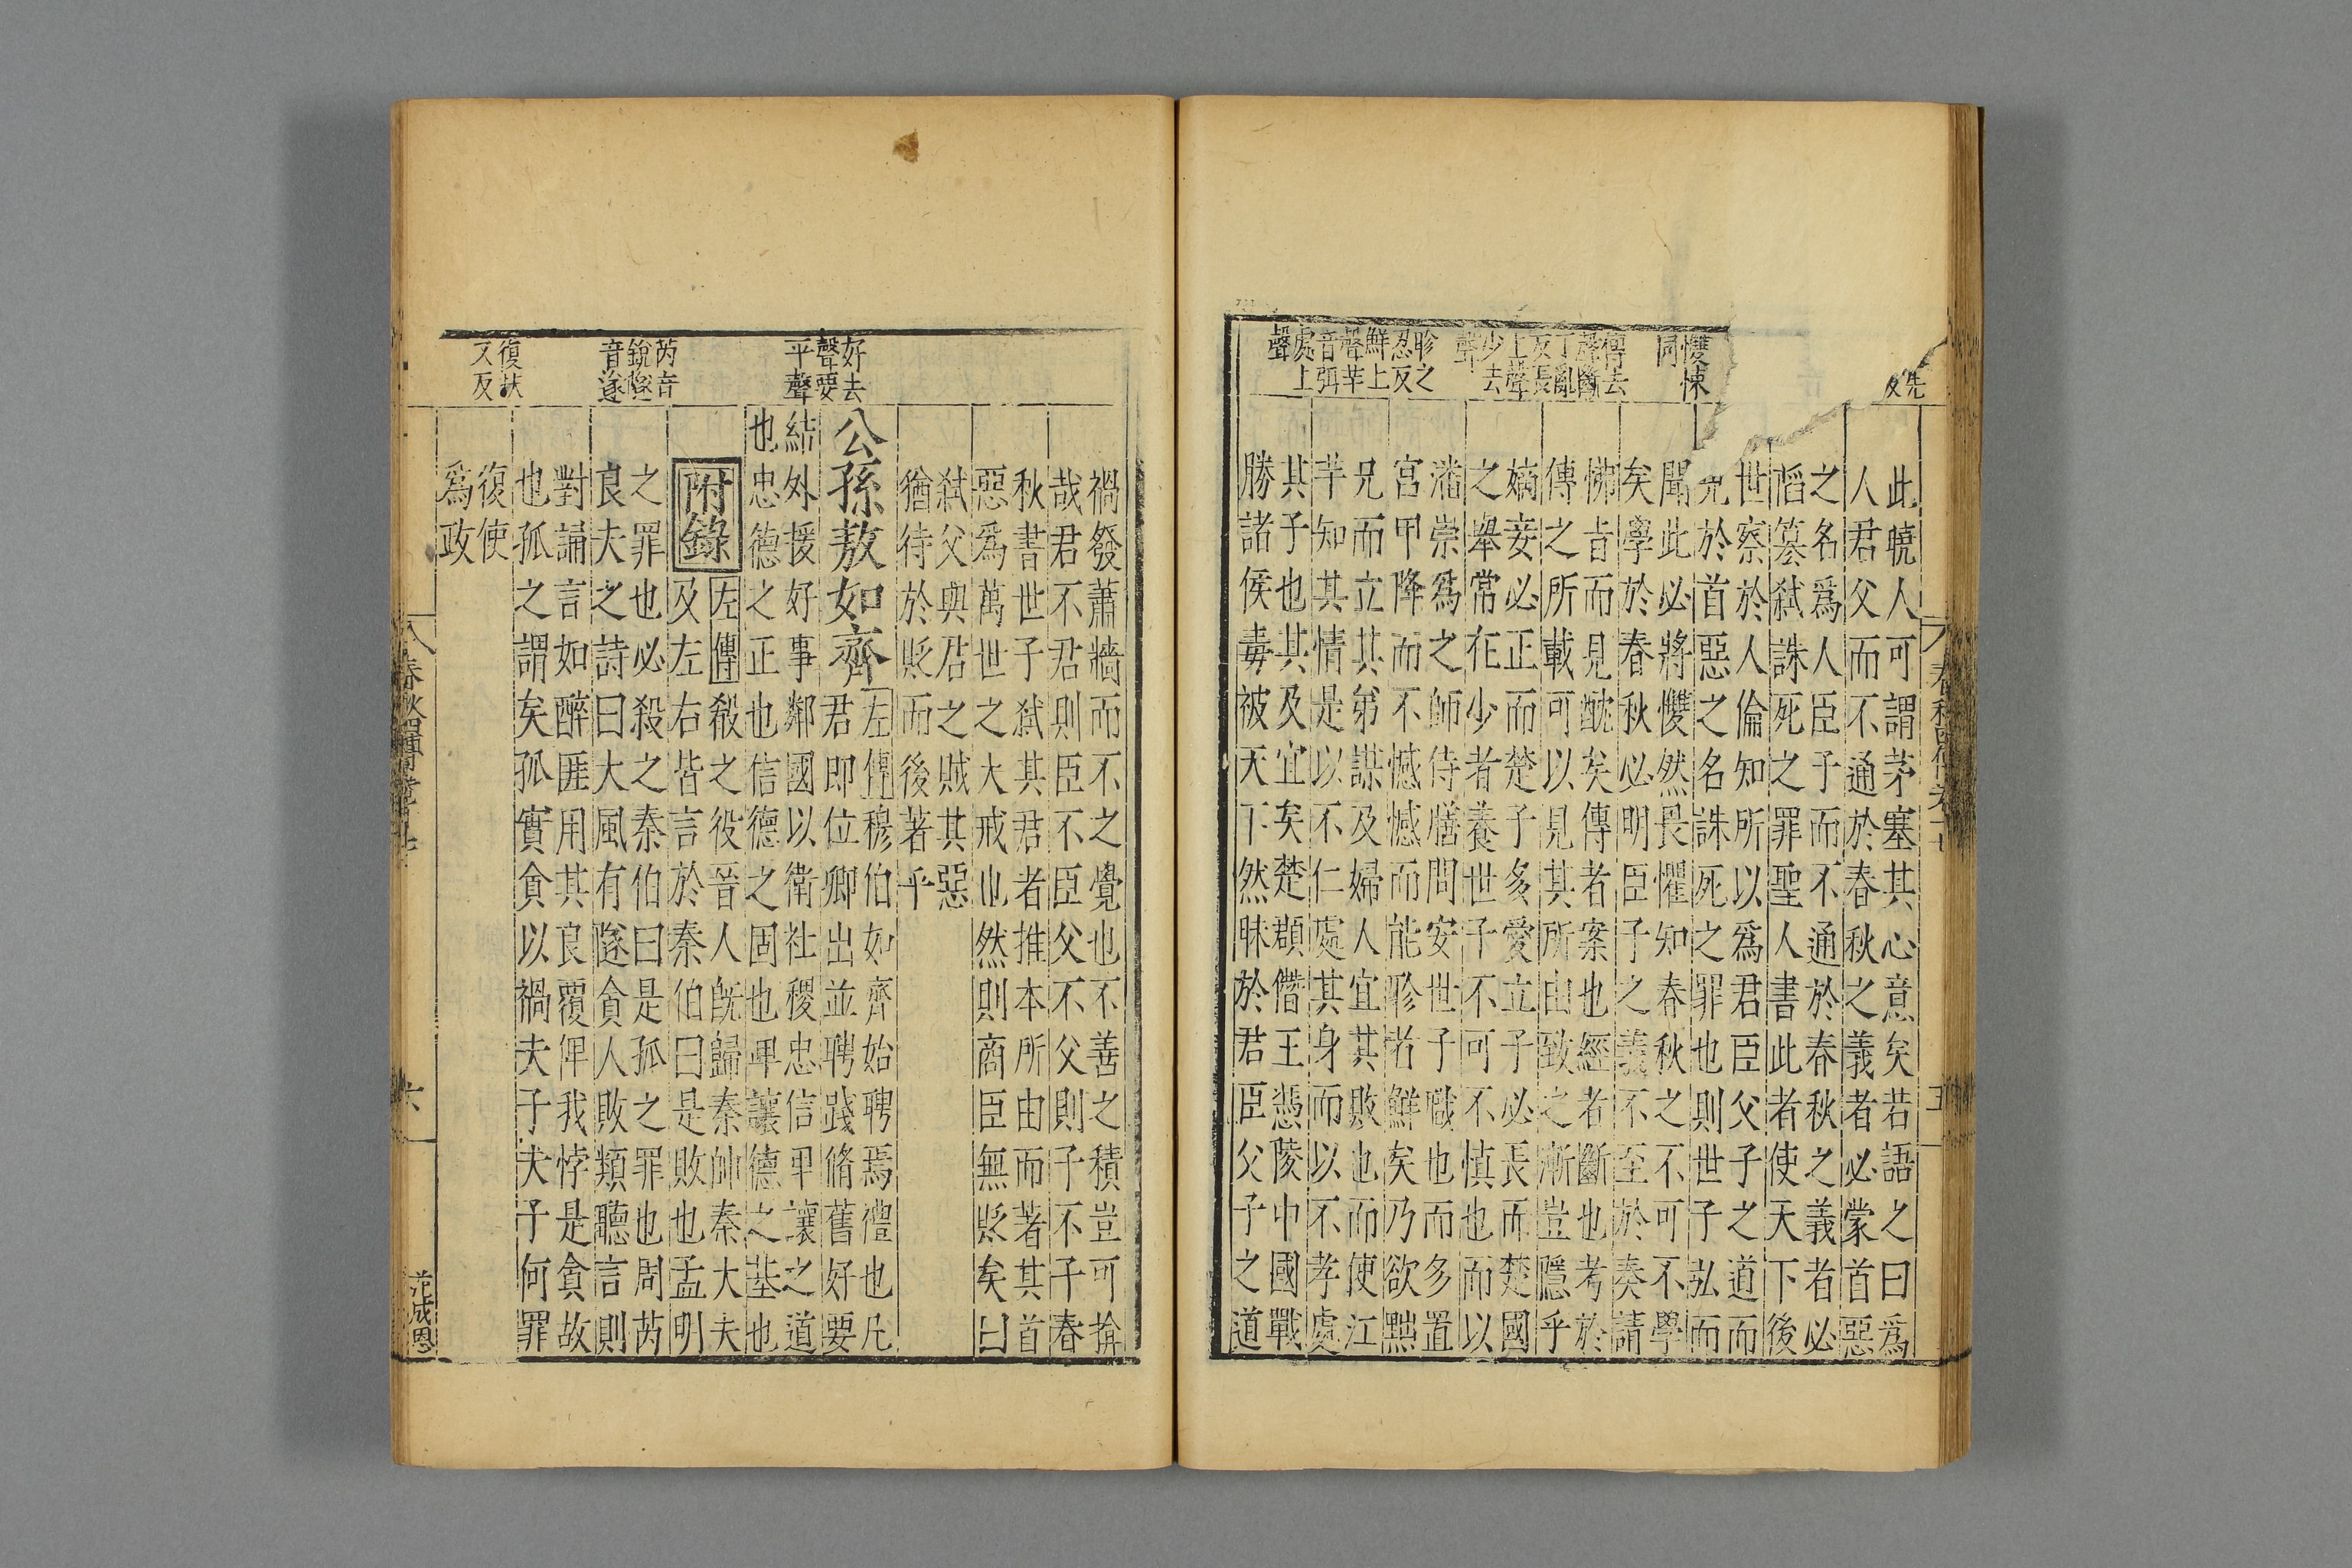 此曉人可謂茅塞其心意矣若語之曰爲
人君父而不通於春秋之義者必蒙首惡
之名爲人臣子而不通於春秋之義者必
䧟篡弑誅死之罪聖人書此者使天下後
世察於人倫知所以爲君臣父子之道而
免於首惡之名誅死之罪也則世子弘而
聞此必將戄然畏懼知春秋之不可不學
矣學於春秋必明臣子之義不至於奏請
怫㫖而見酖矣傳者案也經者斷也考於
傳之所載可以見其所由致之漸豈隱乎
嫡妾必正而楚子多愛立子必長而楚國
之舉常在少者養世子不可不慎也而以
潘崇爲之師侍膳問安世子職也而多置
宮甲降而不憾憾而能眕者鮮矣乃欲黜
兄而立其弟謀及婦人宜其敗也而使江
芊知其情是以不仁處其身而以不孝處
其子也其及宜矣楚頵僭王憑陵中國戰
勝諸侯毒被天下然昧於君臣父子之道
禍發蕭牆而不之覺也不善之積豈可揜
哉君不君則臣不臣父不父則子不子春
秋書世子弑其君者推本所由而著其首
惡爲萬世之大戒也然則商臣無貶矣曰
弑父與君之賊其惡
猶待於貶而後著乎
公孫敖如齊
左傳穆伯如齊始聘焉禮也凡
君即位卿出並聘踐脩舊好要
結外援好事鄰國以衛社稷忠信卑讓之道
也忠德之正也信德之固也卑讓德之基也
附錄
左傳殽之役晉人既歸秦帥秦大夫
及左右皆言於秦伯曰是敗也孟明
之罪也必殺之秦伯曰是孤之罪也周芮
良夫之詩曰大風有隧貪人敗類聽言則
對誦言如醉匪用其良覆俾我悖是貪故
也孤之謂矣孤實貪以禍夫子夫子何罪
復使
爲政
戄悚
同
傳去
聲斷
丁亂
反長
上聲
少去
聲
眕之
忍反
鮮上
聲芊
音弭
處上
聲
好去
聲要
平聲
芮音
銳隧
音遂
復扶
又反
五
六
范成恩